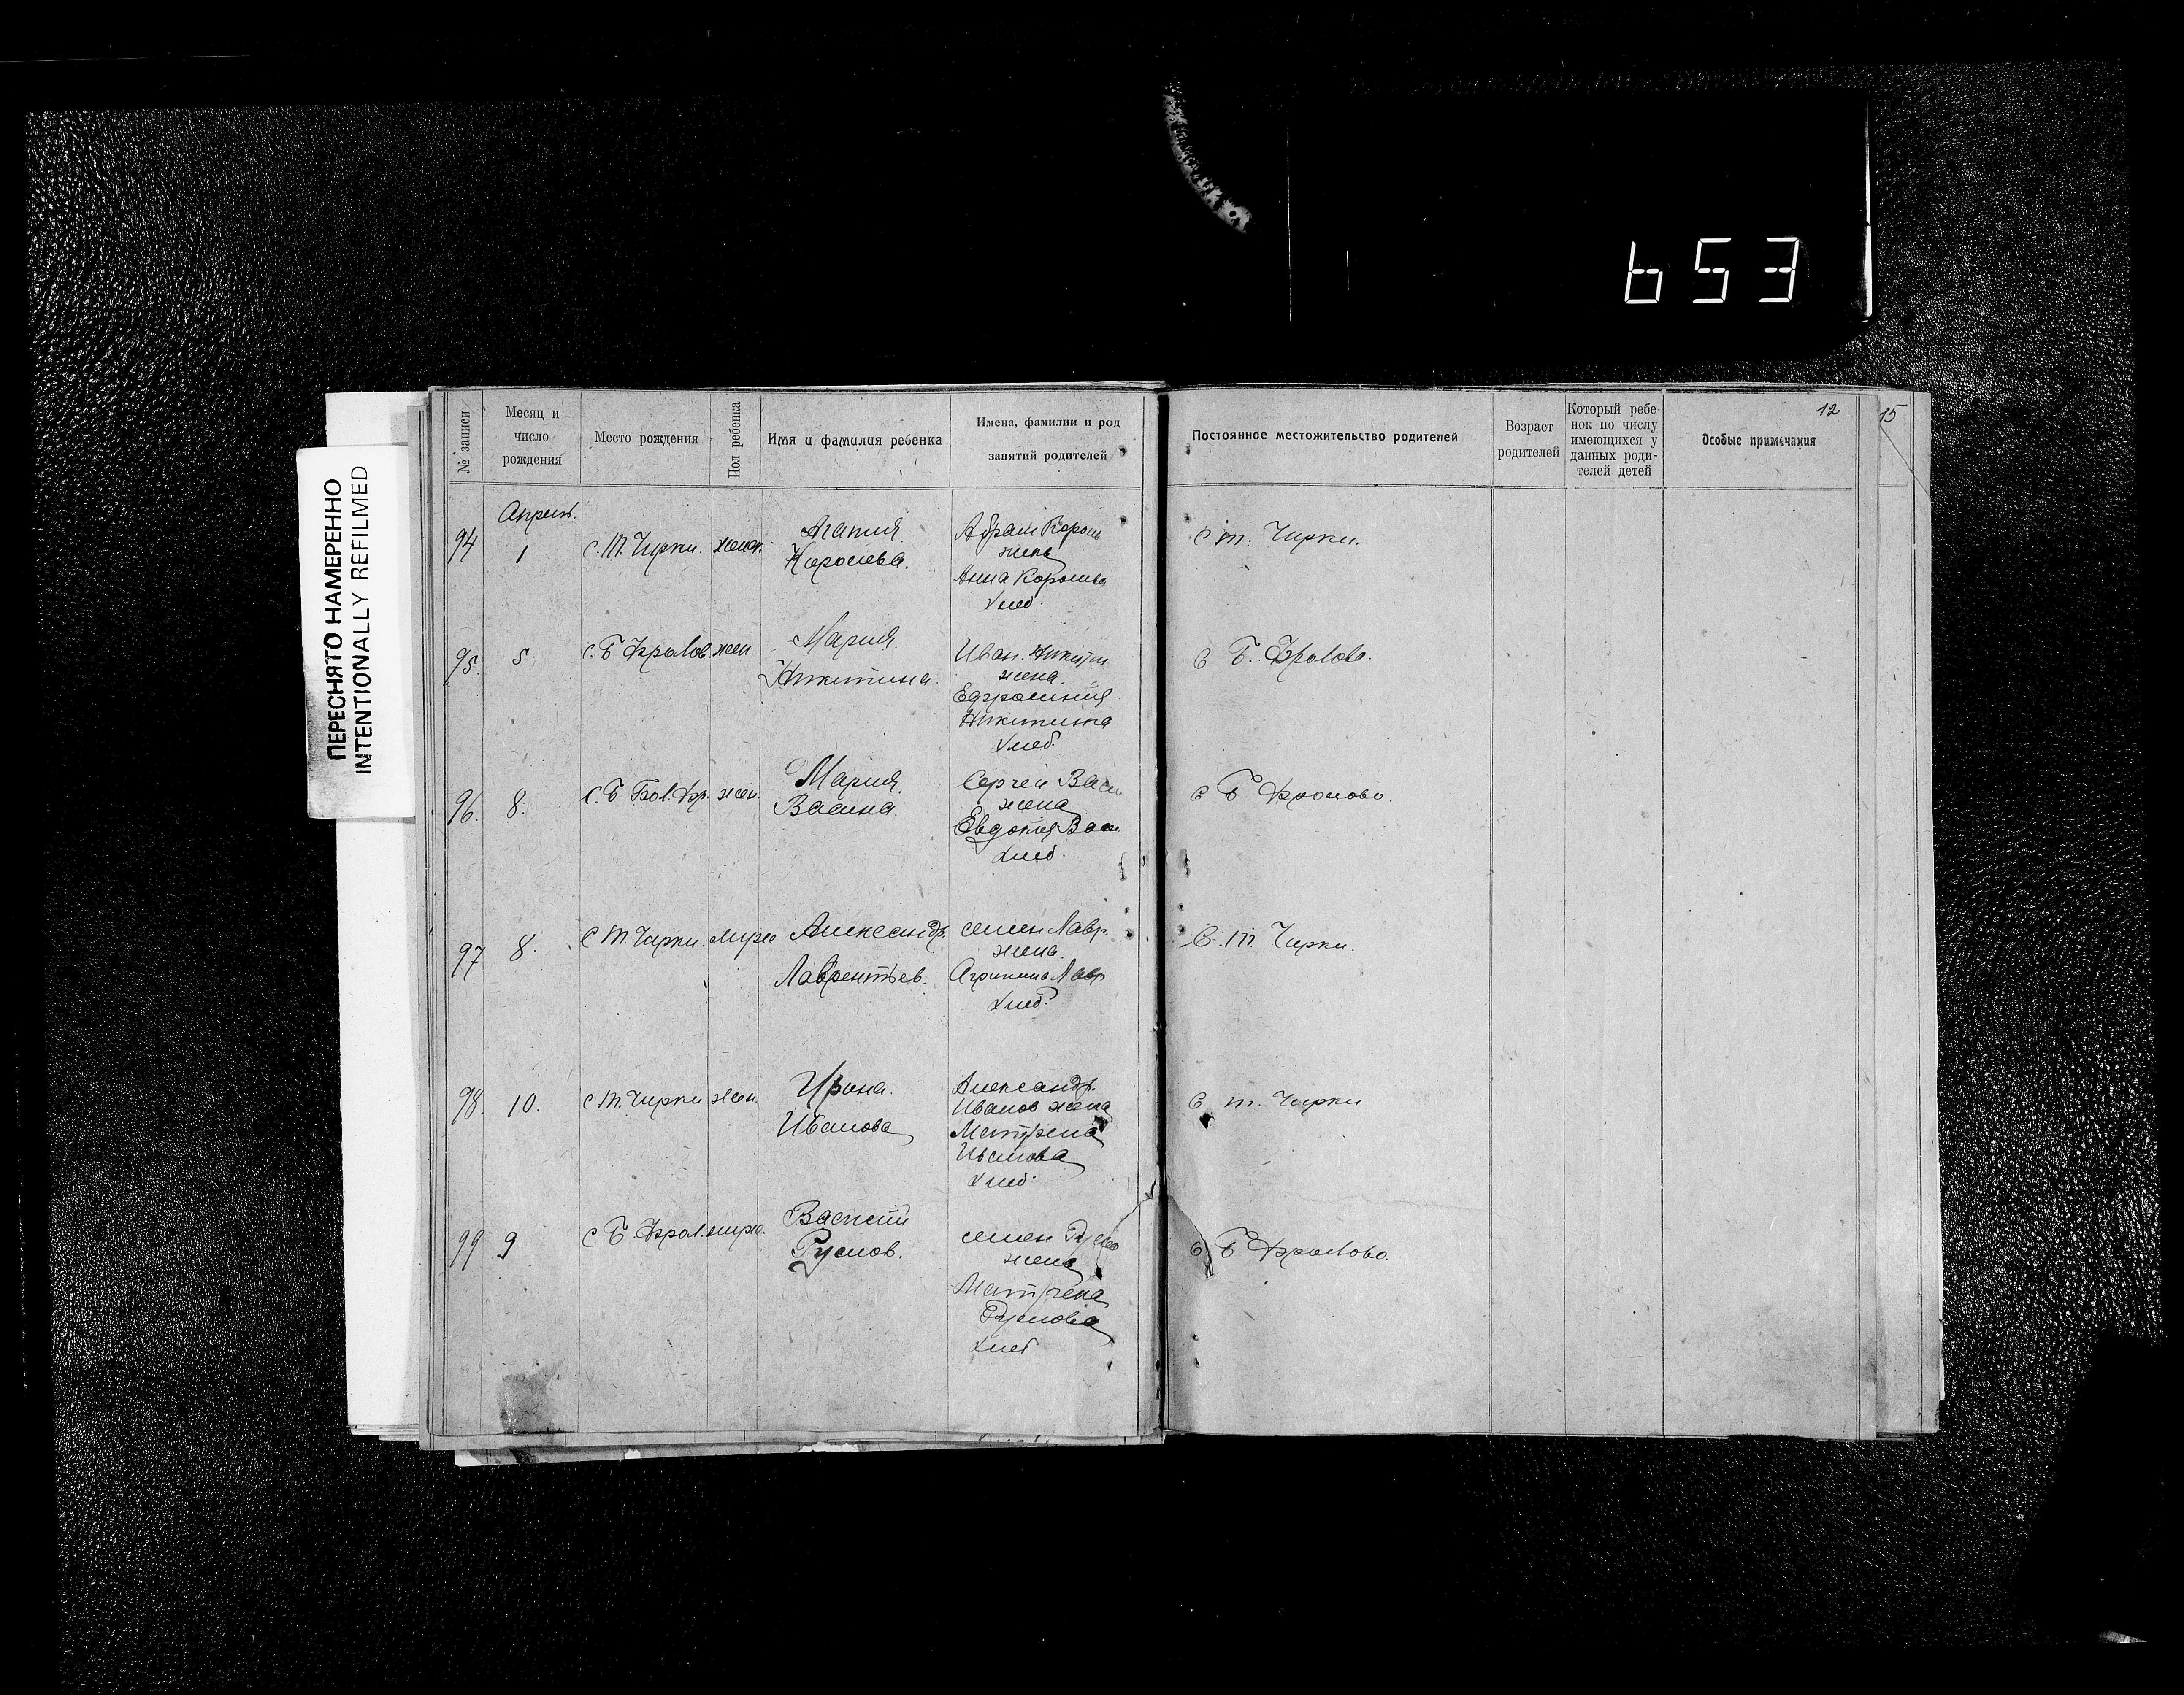 653
ПЕРЕСНЯТО НАМЕРЕННО
INTENTIONALLY REFILMED
№ записи
Месяц и
число
рождения
Место рождения
Пол ребенка
Имя и фамилия ребенка
Имена, фамилии и род
занятий родителей
Постоянное местожительство родителей
Возраст
родителей
Который ребе-
нок по числу
имеющихся у
данных роди-
телей детей
Особые примечания
12
15
Апрель.
94
1
С. Т. Чирки.
женс.
Агапия
Королева.
Абрам Король
жена
Анна Королева
хлеб.
С т. Чирки.
95.
5
С. Б Фролов.
жен
Мария.
Никитина.
Иван Никитин
жена.
Ефросиния
Никитина
хлеб.
С Б. Фролово.
96.
8.
С. Б Бол. Фр.
жен.
Мария.
Васина.
Сергей Васи
жена
Евдокия Васи
хлеб.
С Б Фролово.
97
8.
С Т. Чирки.
Александр.
Лаврентьев.
семен Лавр.
жена.
Агрипина Лавр
хлеб.
С. т. Чирки.
98.
10.
С Т. Чирки
жен.
Ирина.
Иванова
Александр.
Иванов жена
Матрена
Иванова
хлеб.
С т. Чирки
99
9
С Б. Фрол.
Василий
Руслов.
семен
жена
Матрена
Руслова
хлеб
С Б Фролово.